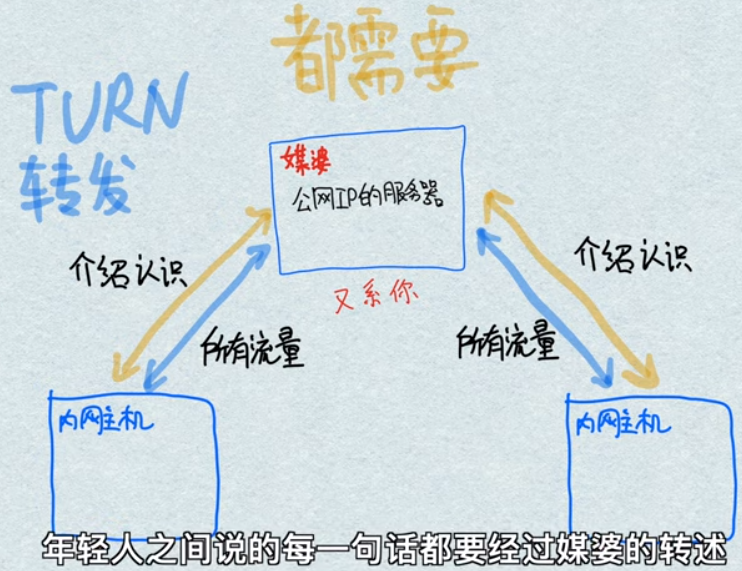 都需要
TURN
转发
媒婆
公网IP的服务器
又系你
介绍认识
介绍认识
所有流量
所有流量
内网主机
内网主机
年轻人之间说的每一句话都要经过媒婆的转述